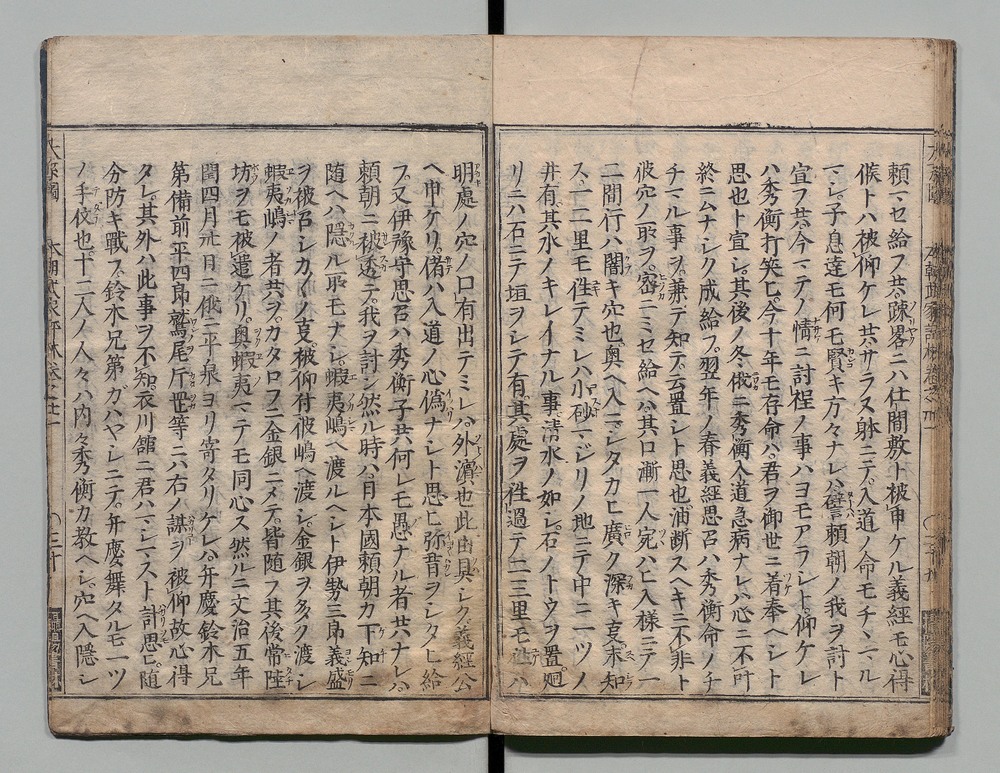 頼マセ給フ共踈畧ニハ仕間敷ト被申ケル義經モ心得
候トハ被仰ケレ共サラヌ躰ニテ入道ノ命モチヽマル
マシ子息達モ何モ賢キ方々ナレハ譬頼朝ノ我ヲ討ト
宣フ共今マテノ情ニ討程ノ事ハヨモアラシト仰ケレ
ハ秀衡打笑ヒ今十年モ存命ハ君ヲ御世ニ着奉ヘシト
思也ト宣シ其後ノ冬俄ニ秀衡入道急病ナレハ心ニ不叶
終ニムナシク成給フ翌年ノ春義經思召ハ秀衡命ノチ
チマル事ヲ兼テ知テ云置シト思也油断スヘキニ不非ト
彼穴ノ取ヲ密ニミセ給ヘハ其口漸一人宛ハヒ入様ニテ一
二間行ハ闇キ穴也奥ヘ入ニシタカヒ廣ク深キ支末知
ス一二里モ徃テミレハ小砂マシリノ地ニテ中ニ一ツノ
井有其水ノキレイナル事清水ノ如シ石ノトウヲ置廻
リニハ石ニテ垣ヲシテ有其處ヲ徃過テ二三里モ徃ハ
明處ノ穴ノ口有出テミレハ外濵也此由具シク義經公
ヘ申ケリ偖ハ入道ノ心偽ナシト思ヒ弥昔ヲシタヒ給
フ又伊豫守思召ハ秀衡子共何レモ愚ナル者共ナレハ
頼朝ニ被透テ我ヲ討ン然ル時ハ日本國頼朝カ下知ニ
随ヘハ隠ル取モナシ蝦夷嶋ヘ渡ルヘシト伊勢三郎義盛
ヲ被召シカ〱ノ支被仰付彼嶋ヘ渡シ金銀ヲタク渡シ
蝦夷嶋ノ者共ヲカタロフニ金銀ニメテ皆随フ其後常陸
坊ヲモ被遣ケリ奥蝦夷マテモ同心ス然ルニ文治五年
閏四月廿日ニ俄ニ平泉ヨリ寄タリケレハ弁慶鈴木兄
第備前平四郎鷲尾等ニハ右ノ謀ヲ被仰故心得
タレ其外ハ此事ヲ不知衣川舘ニ君ハマシマスト計思ヒ随
分防キ戰フ鈴木兄第カハヤシニテ弁慶舞タルモ一ツ
ノ手伩也十二人ノ人々ハ内々秀衡カ教ヘシ穴ヘ入隠シ